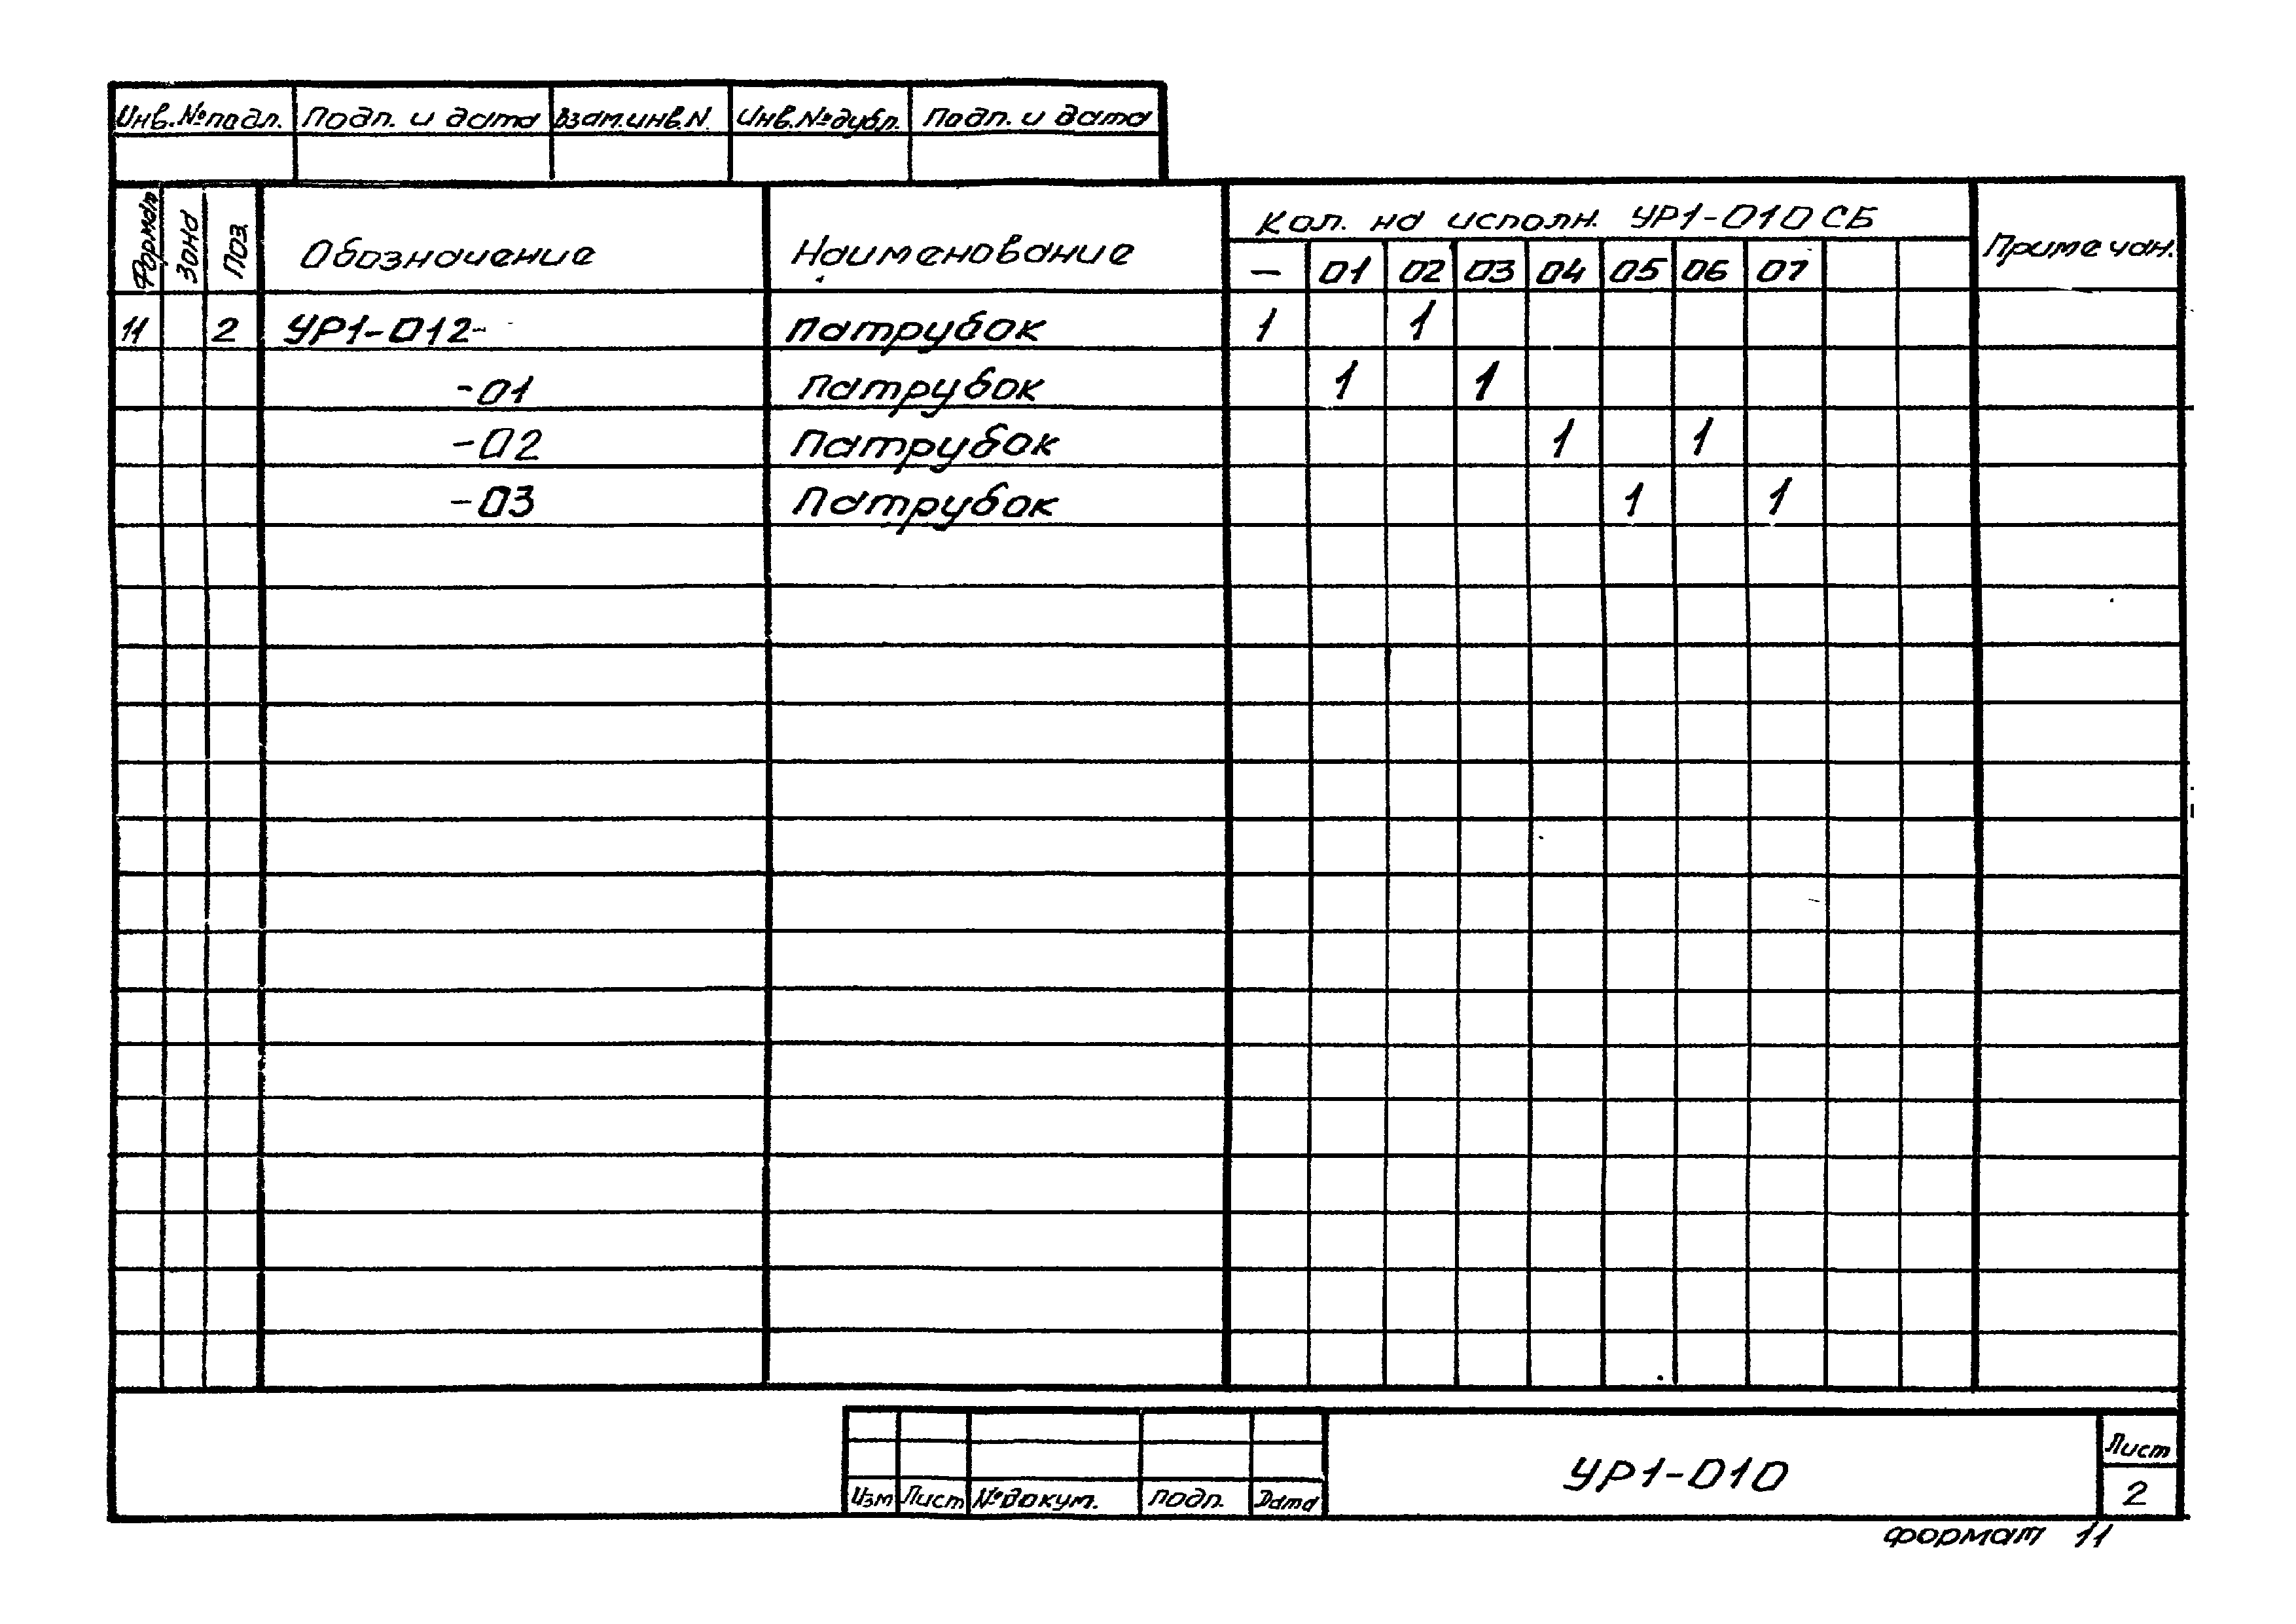 Инв.№подл. Подп. и дата Взам.инв.N. Инв.№дубл. Подп. и дата
Формат Зона Поз. Обозначение Наименование Кол. на исполн. УР1-010СБ Примечан.
— 01 02 03 04 05 06 07
11 2 УР1-012- Патрубок 1 1
-01 Патрубок 1 1
-02 Патрубок 1 1
-03 Патрубок 1 1
УР1-010 Лист
Изм Лист №докум. подп. Дата 2
формат 11